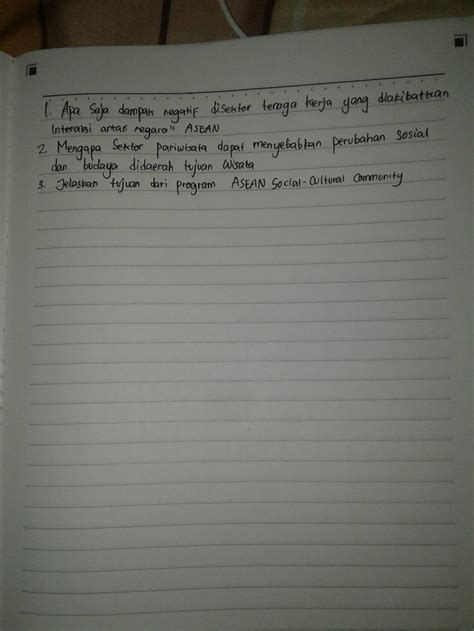 1. Apa saja dampak negatif disektor tenaga kerja yang diakibatkan
Interaksi antar negara" ASEAN
2. Mengapa Sektor pariwisata dapat menyebabkan perubahan sosial
dan budaya didaerah tujuan wisata
3. Jelaskan tujuan dari program ASEAN Social-Cultural Community